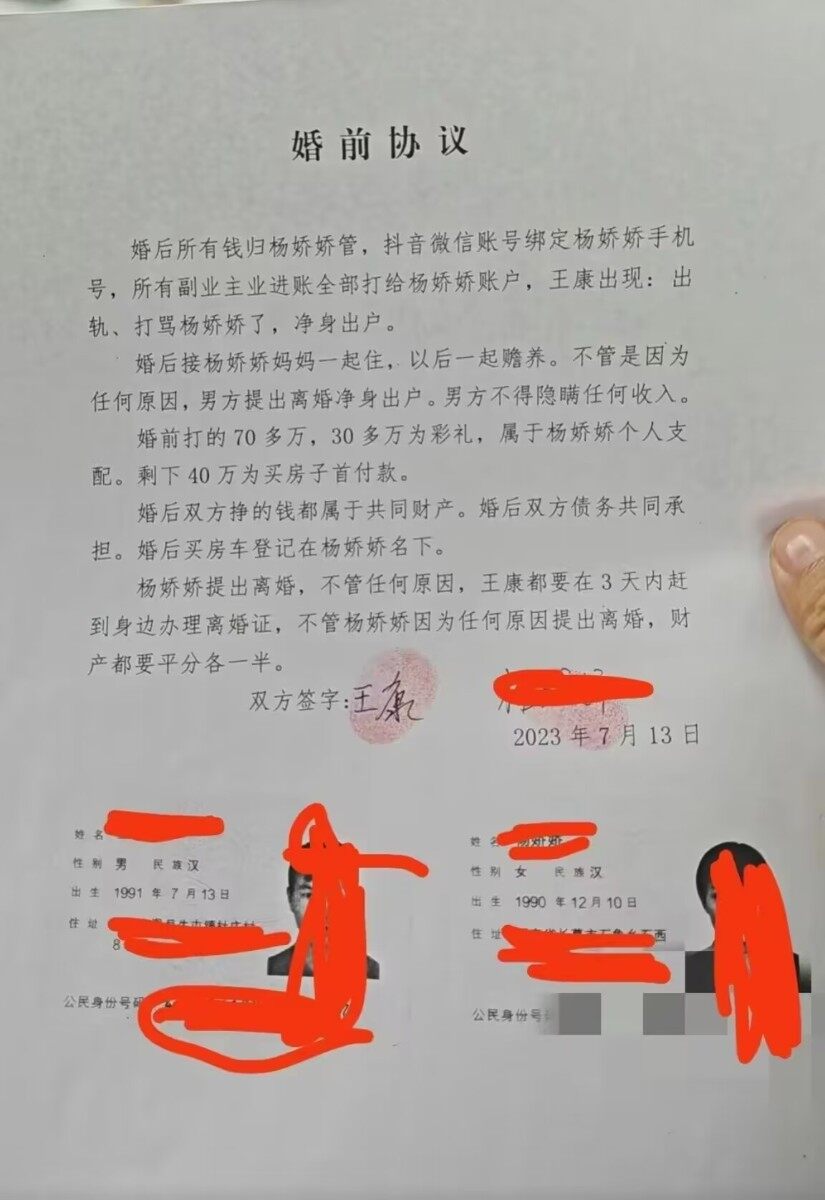 婚前协议
婚后所有钱归杨娇娇管，抖音微信账号绑定杨娇娇手机
号，所有副业主业进账全部打给杨娇娇账户，王康出现：出
轨、打骂杨娇娇了，净身出户。
婚后接杨娇娇妈妈一起住，以后一起赡养。不管是因为
任何原因，男方提出离婚净身出户。男方不得隐瞒任何收入。
婚前打的70多万，30多万为彩礼，属于杨娇娇个人支
配。剩下40万为买房子首付款。
婚后双方挣的钱都属于共同财产。婚后双方债务共同承
担。婚后买房车登记在杨娇娇名下。
杨娇娇提出离婚，不管任何原因，王康都要在3天内赶
到身边办理离婚证，不管杨娇娇因为任何原因提出离婚，财
产都要平分各一半。
双方签字：王康
2023年7月13日
姓名
性别 男 民族 汉
出生 1991年7月13日
住址
8
公民身份号码
姓名
性别 女 民族 汉
出生 1990年12月10日
住址
公民身份号